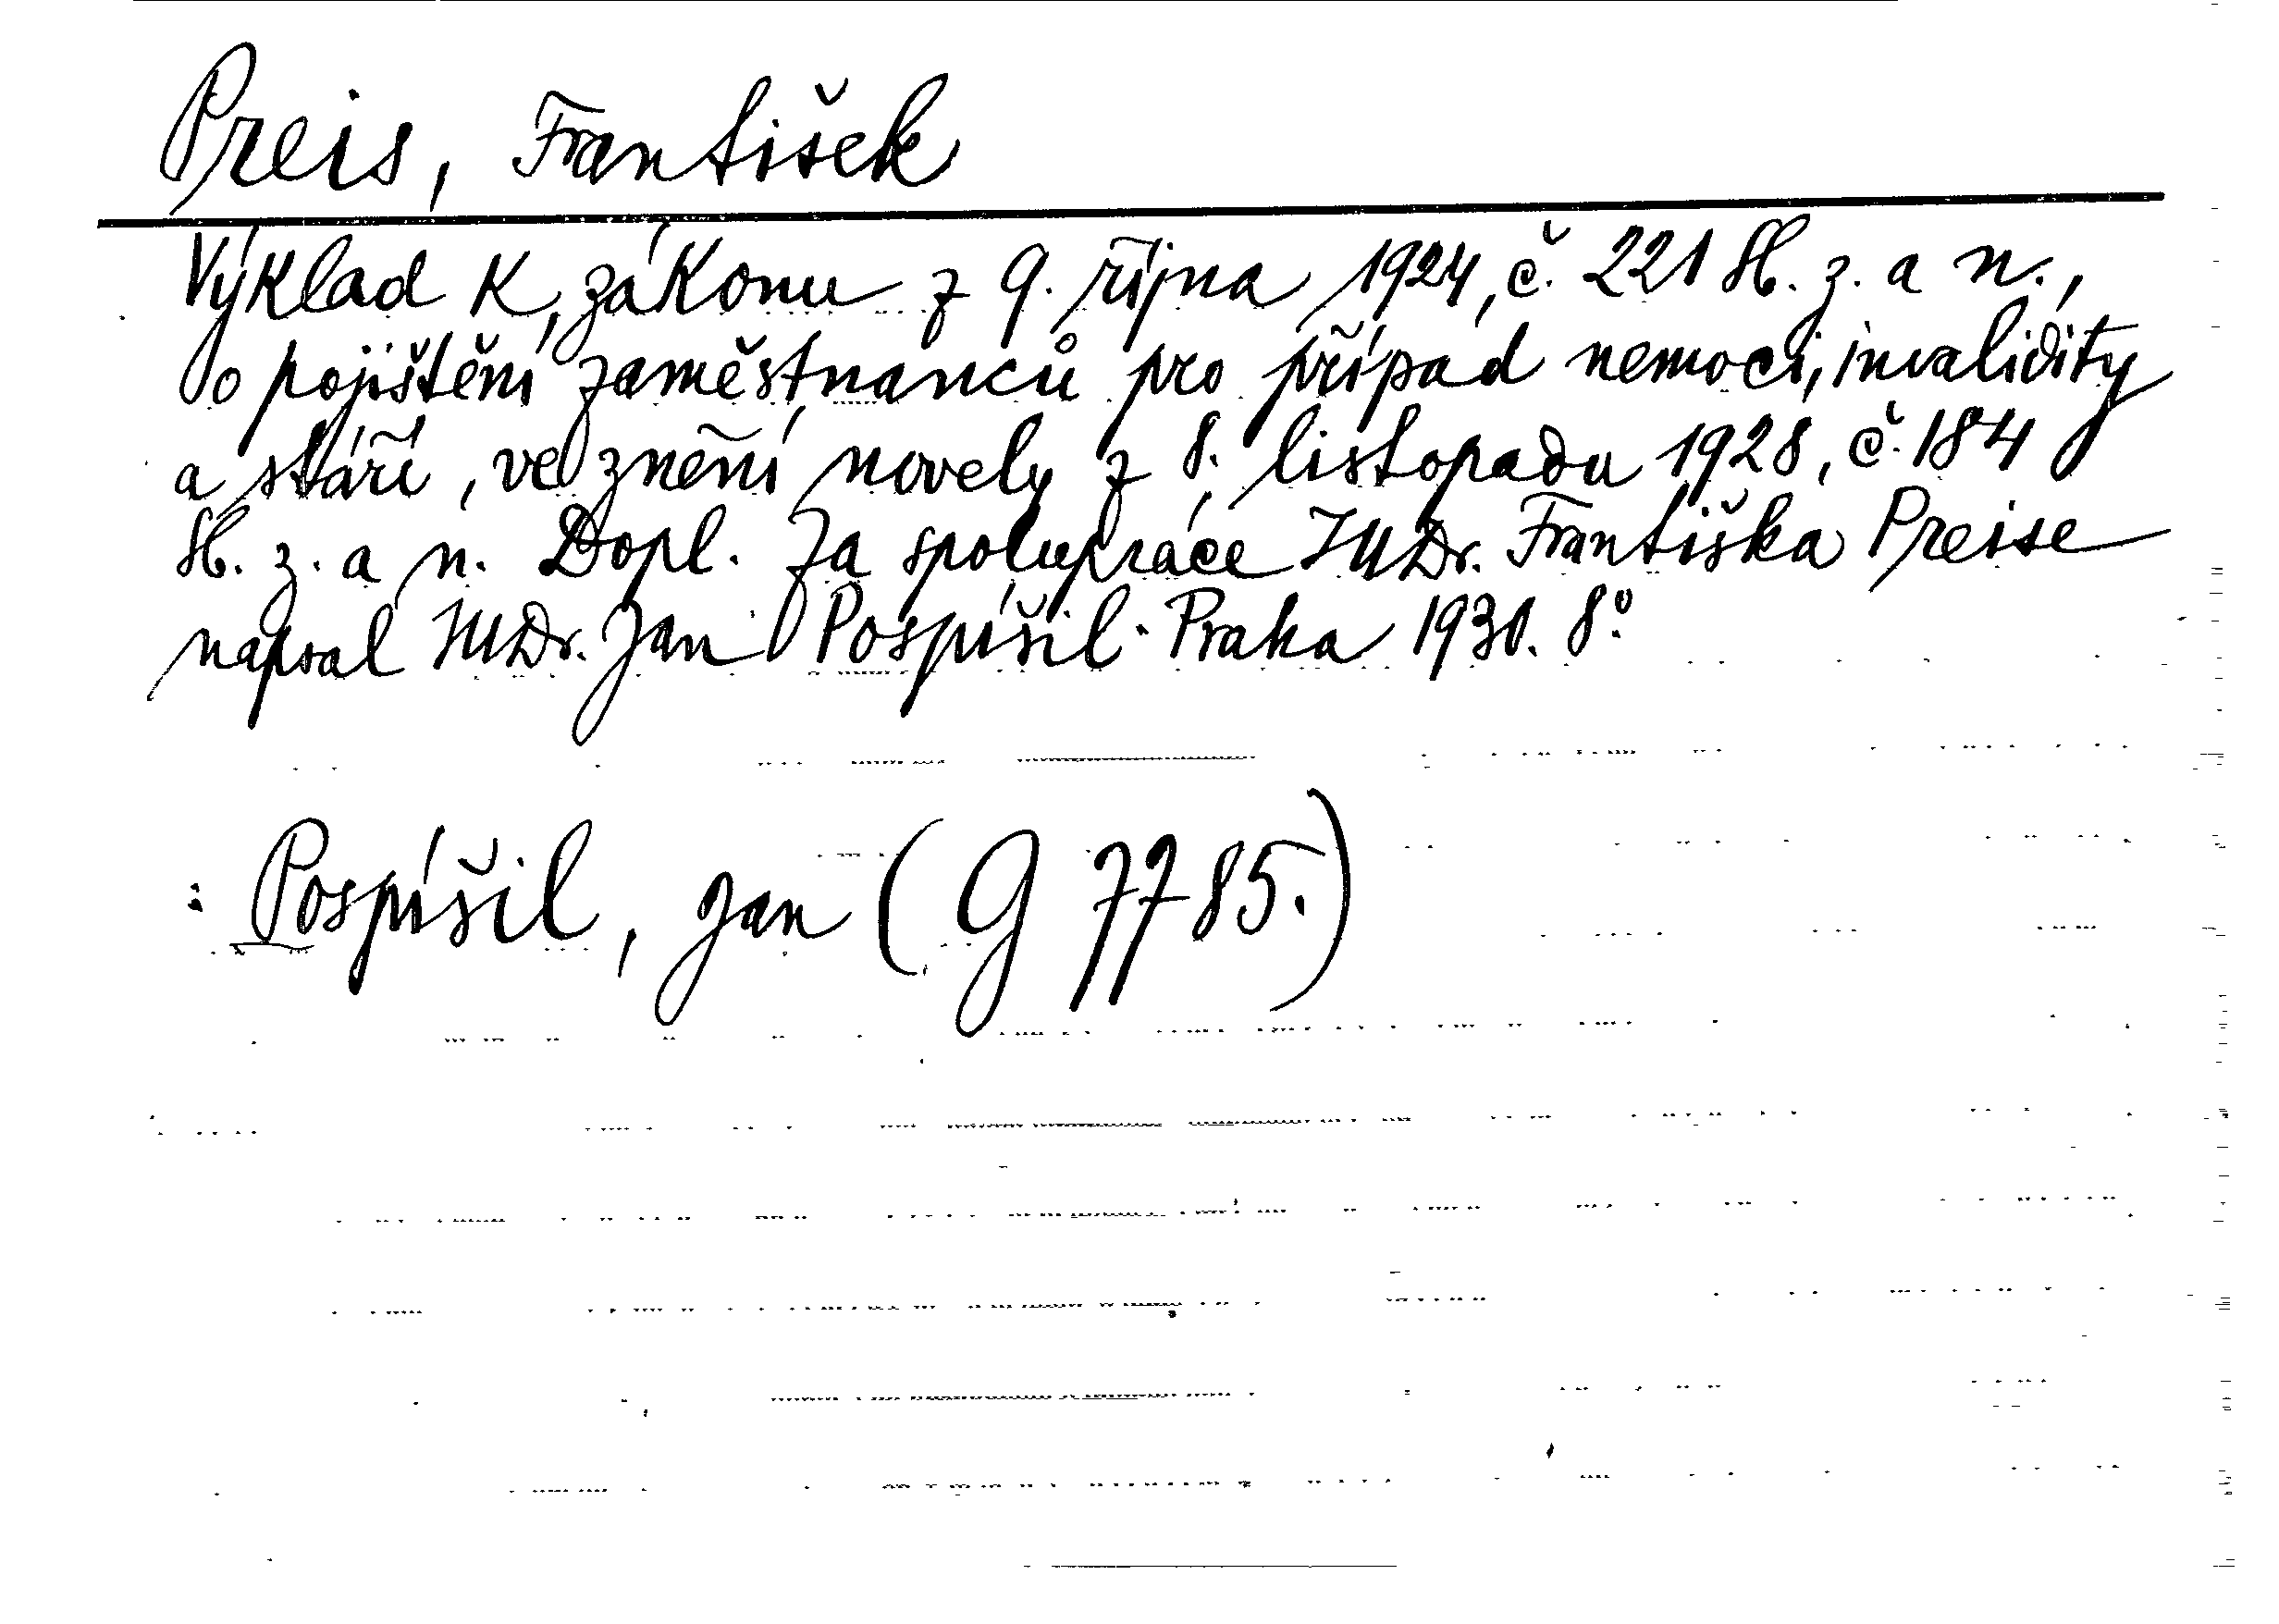 Preis, František
Výklad k zákonu z 9. října 1924, č. 221 Sb. z. a n.,
o pojištění zaměstnanců pro případ nemoci, invalidity
a stáří, ve znění novely z 8. listopadu 1928, č. 184
Sb. z. a n. Dopl. Za spolupráce JUDr. Františka Preise
napsal JUDr. Jan Pospíšil. Praha 1930. 8°.
: Pospíšil, Jan (G 7785.)